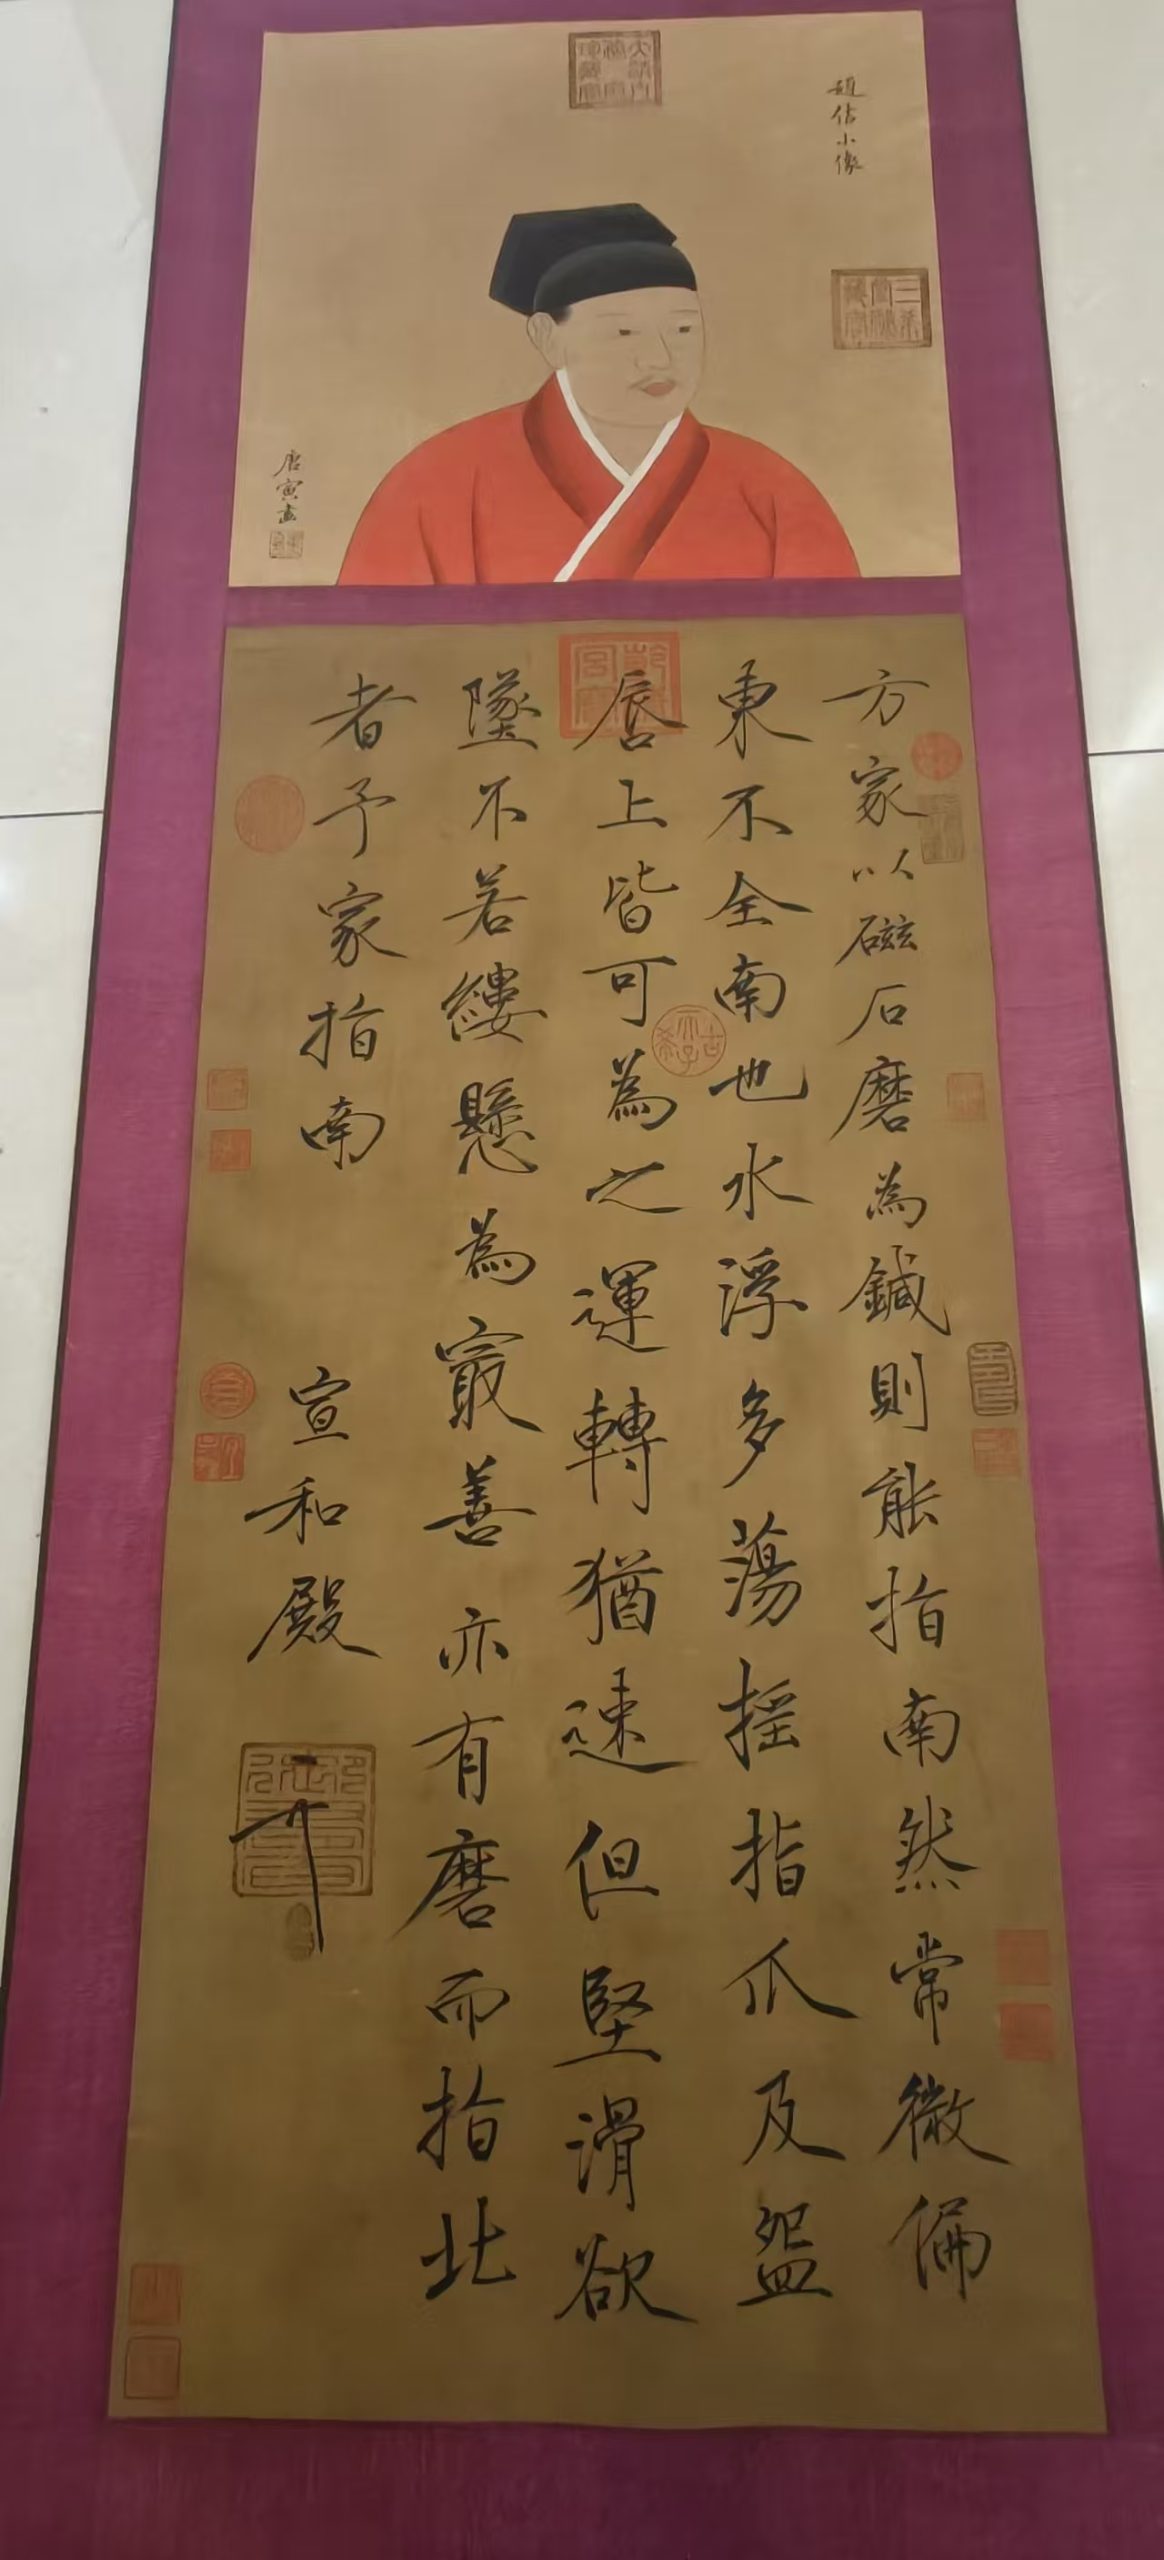 趙佶小像
唐寅畫
方家以磁石磨為鍼則能指南然常微偏
東不全南也水浮多蕩摇指爪及盌
唇上皆可為之運轉猶速但堅滑欲
墜不若縷懸為㝡善亦有磨而指北
者予家指南
宣和殿